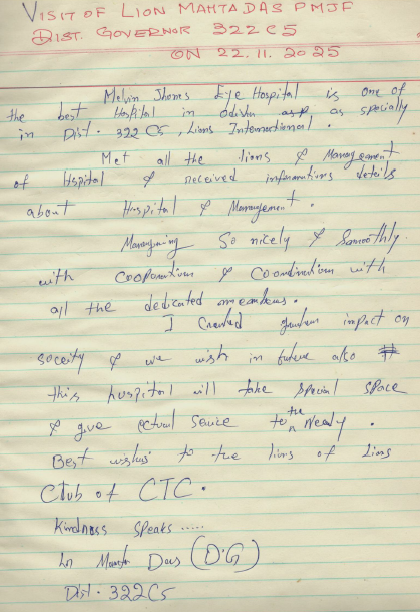 VISIT OF LION MAMTA DAS PMJF
DIST. GOVERNOR 322C5
ON 22.11.2025
Melvin Jhones Eye Hospital is one of
the best Hospital in Odisha as specially
in Dist. 322 C5, Lions International.
Met all the lions & Management
of Hspital & received informations details
about Hospital & Management.
Managing So nicely & Smoothly
with cooperation & Coordination with
all the dedicated members.
I impact on
soceity & we wish in future also
this hospital will take special space
& give service to the Needy.
Best wishes to the lions of Lions
Club of CTC.
Kindness speaks .....
Ln Mamta Das (DG)
Dist. 322C5